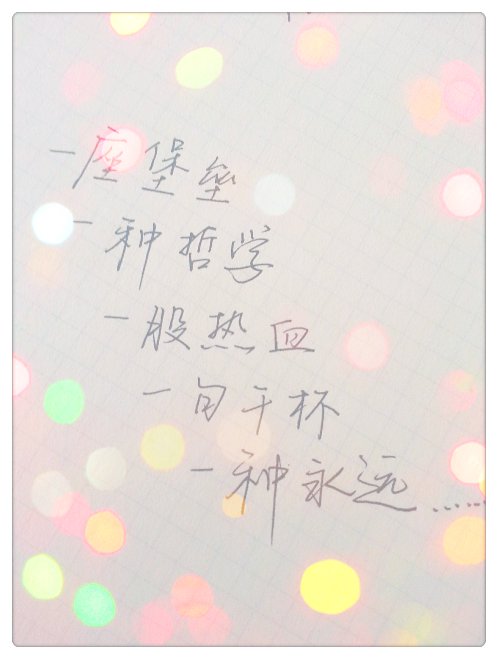 一座堡垒
一种哲学
一股热血
一句干杯
一种永远……